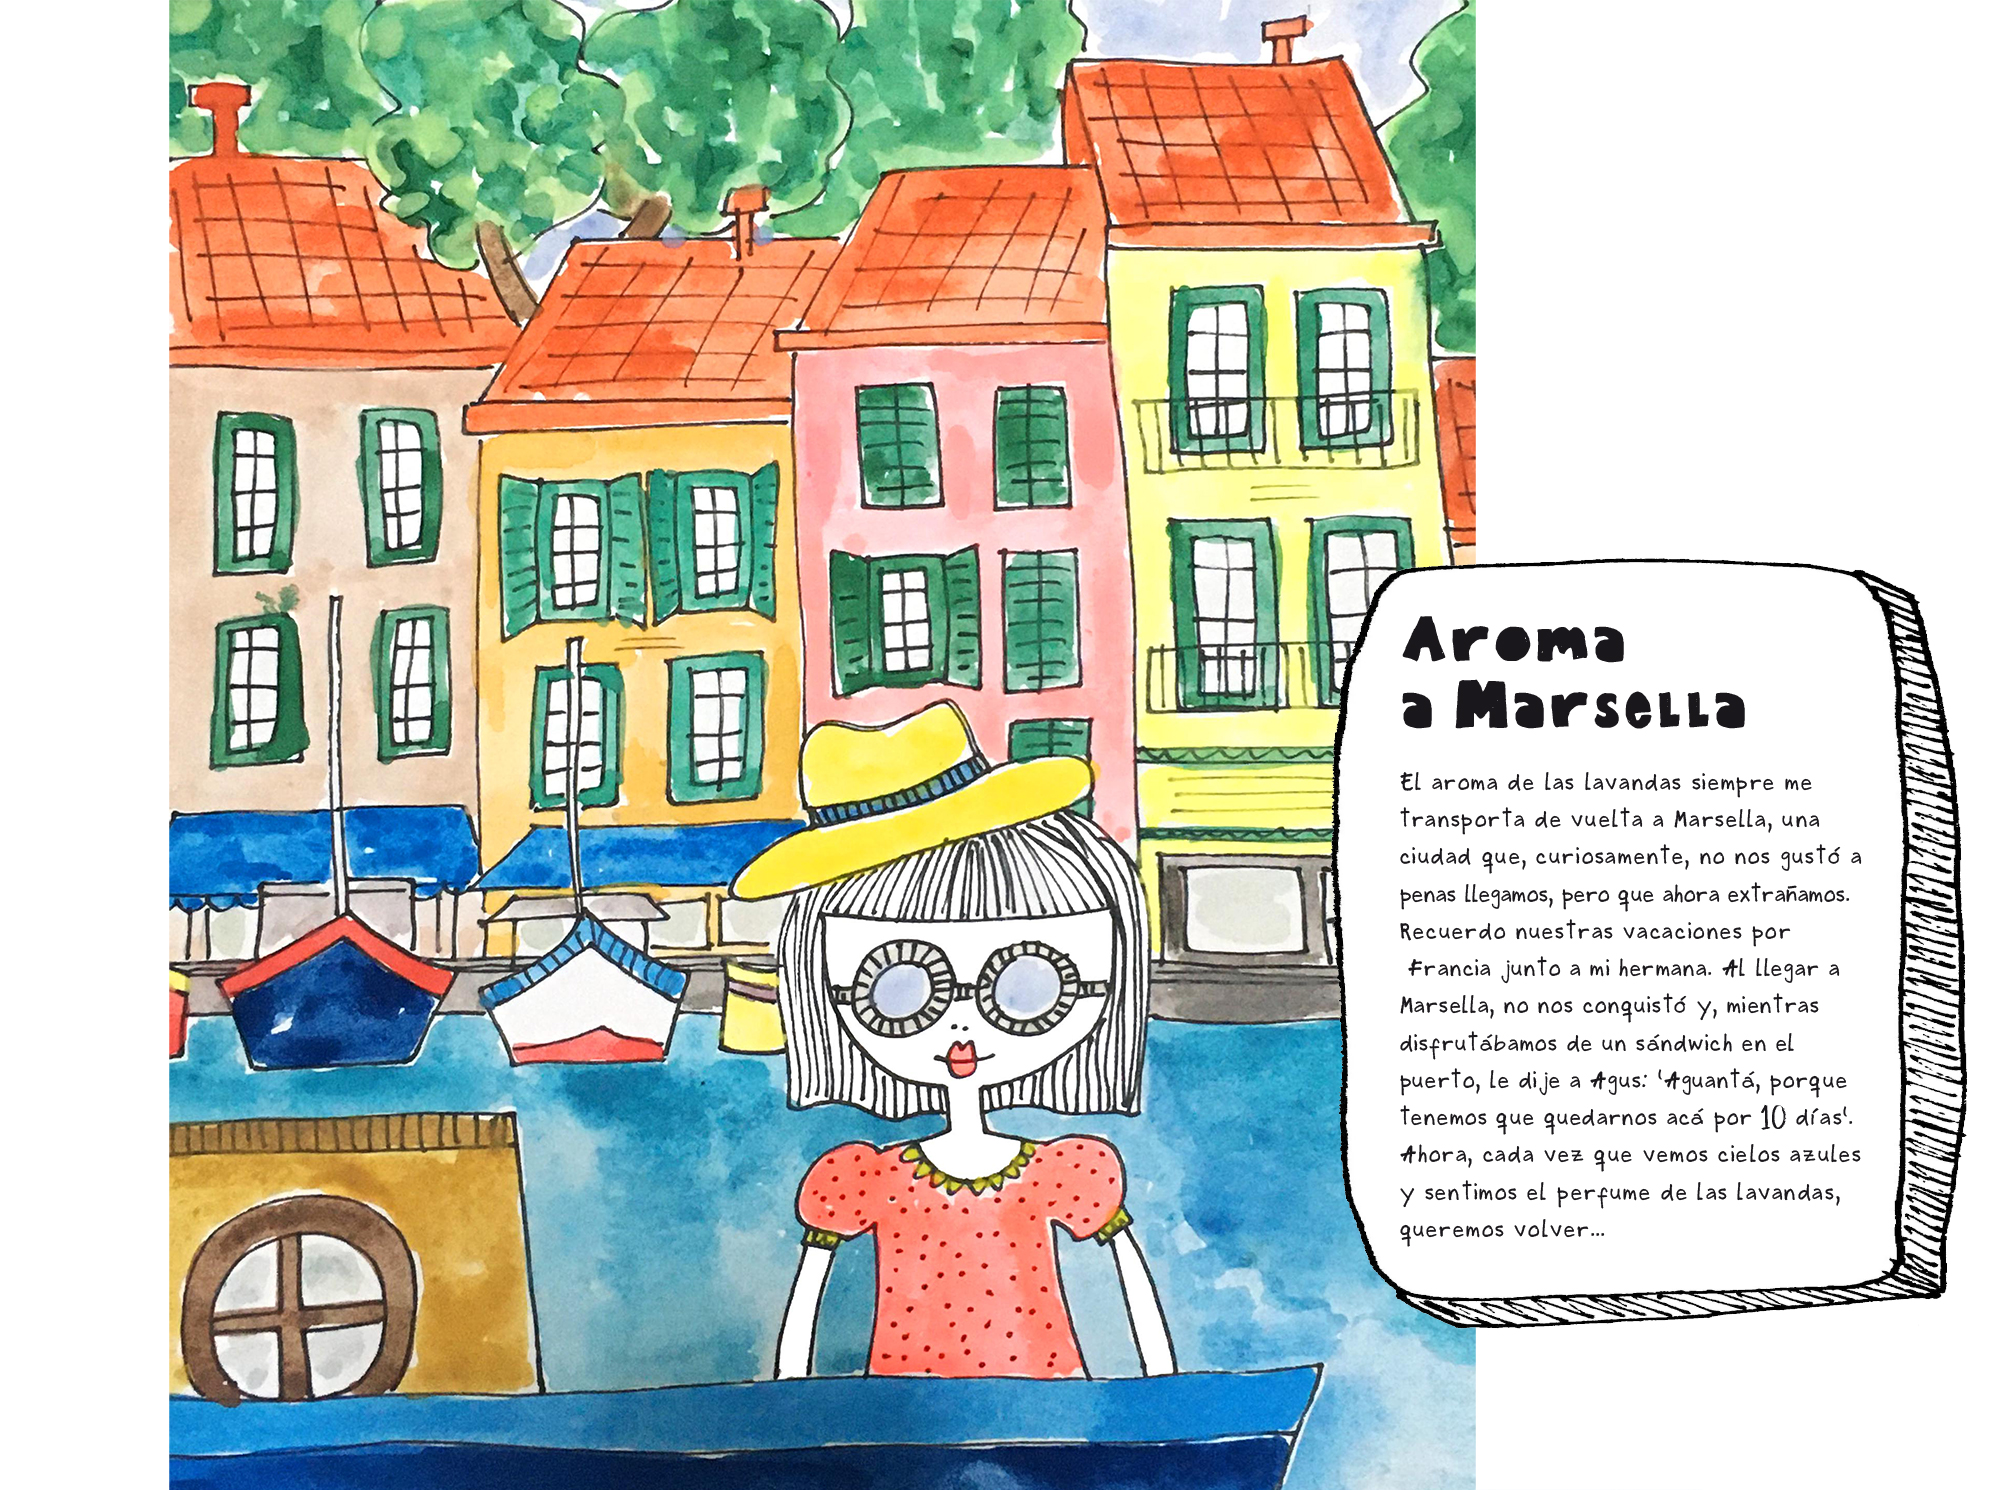 Aroma
a Marsella
El aroma de las lavandas siempre me
transporta de vuelta a Marsella, una
ciudad que, curiosamente, no nos gustó a
penas llegamos, pero que ahora extrañamos.
Recuerdo nuestras vacaciones por
Francia junto a mi hermana. Al llegar a
Marsella, no nos conquistó y, mientras
disfrutábamos de un sándwich en el
puerto, le dije a Agus: 'Aguantá, porque
tenemos que quedarnos acá por 10 días'.
Ahora, cada vez que vemos cielos azules
y sentimos el perfume de las lavandas,
queremos volver...